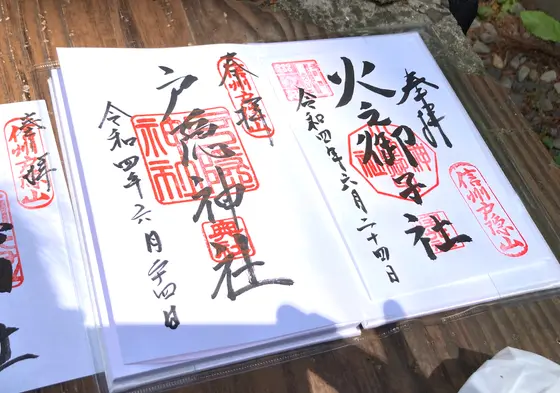 奉拝
信州戸隠山
火之御子社
令和四年六月二十四日
奉拝
信州戸隠山
戸隠神社
奥社
令和四年六月廿四日
奉拝
信州戸隠山